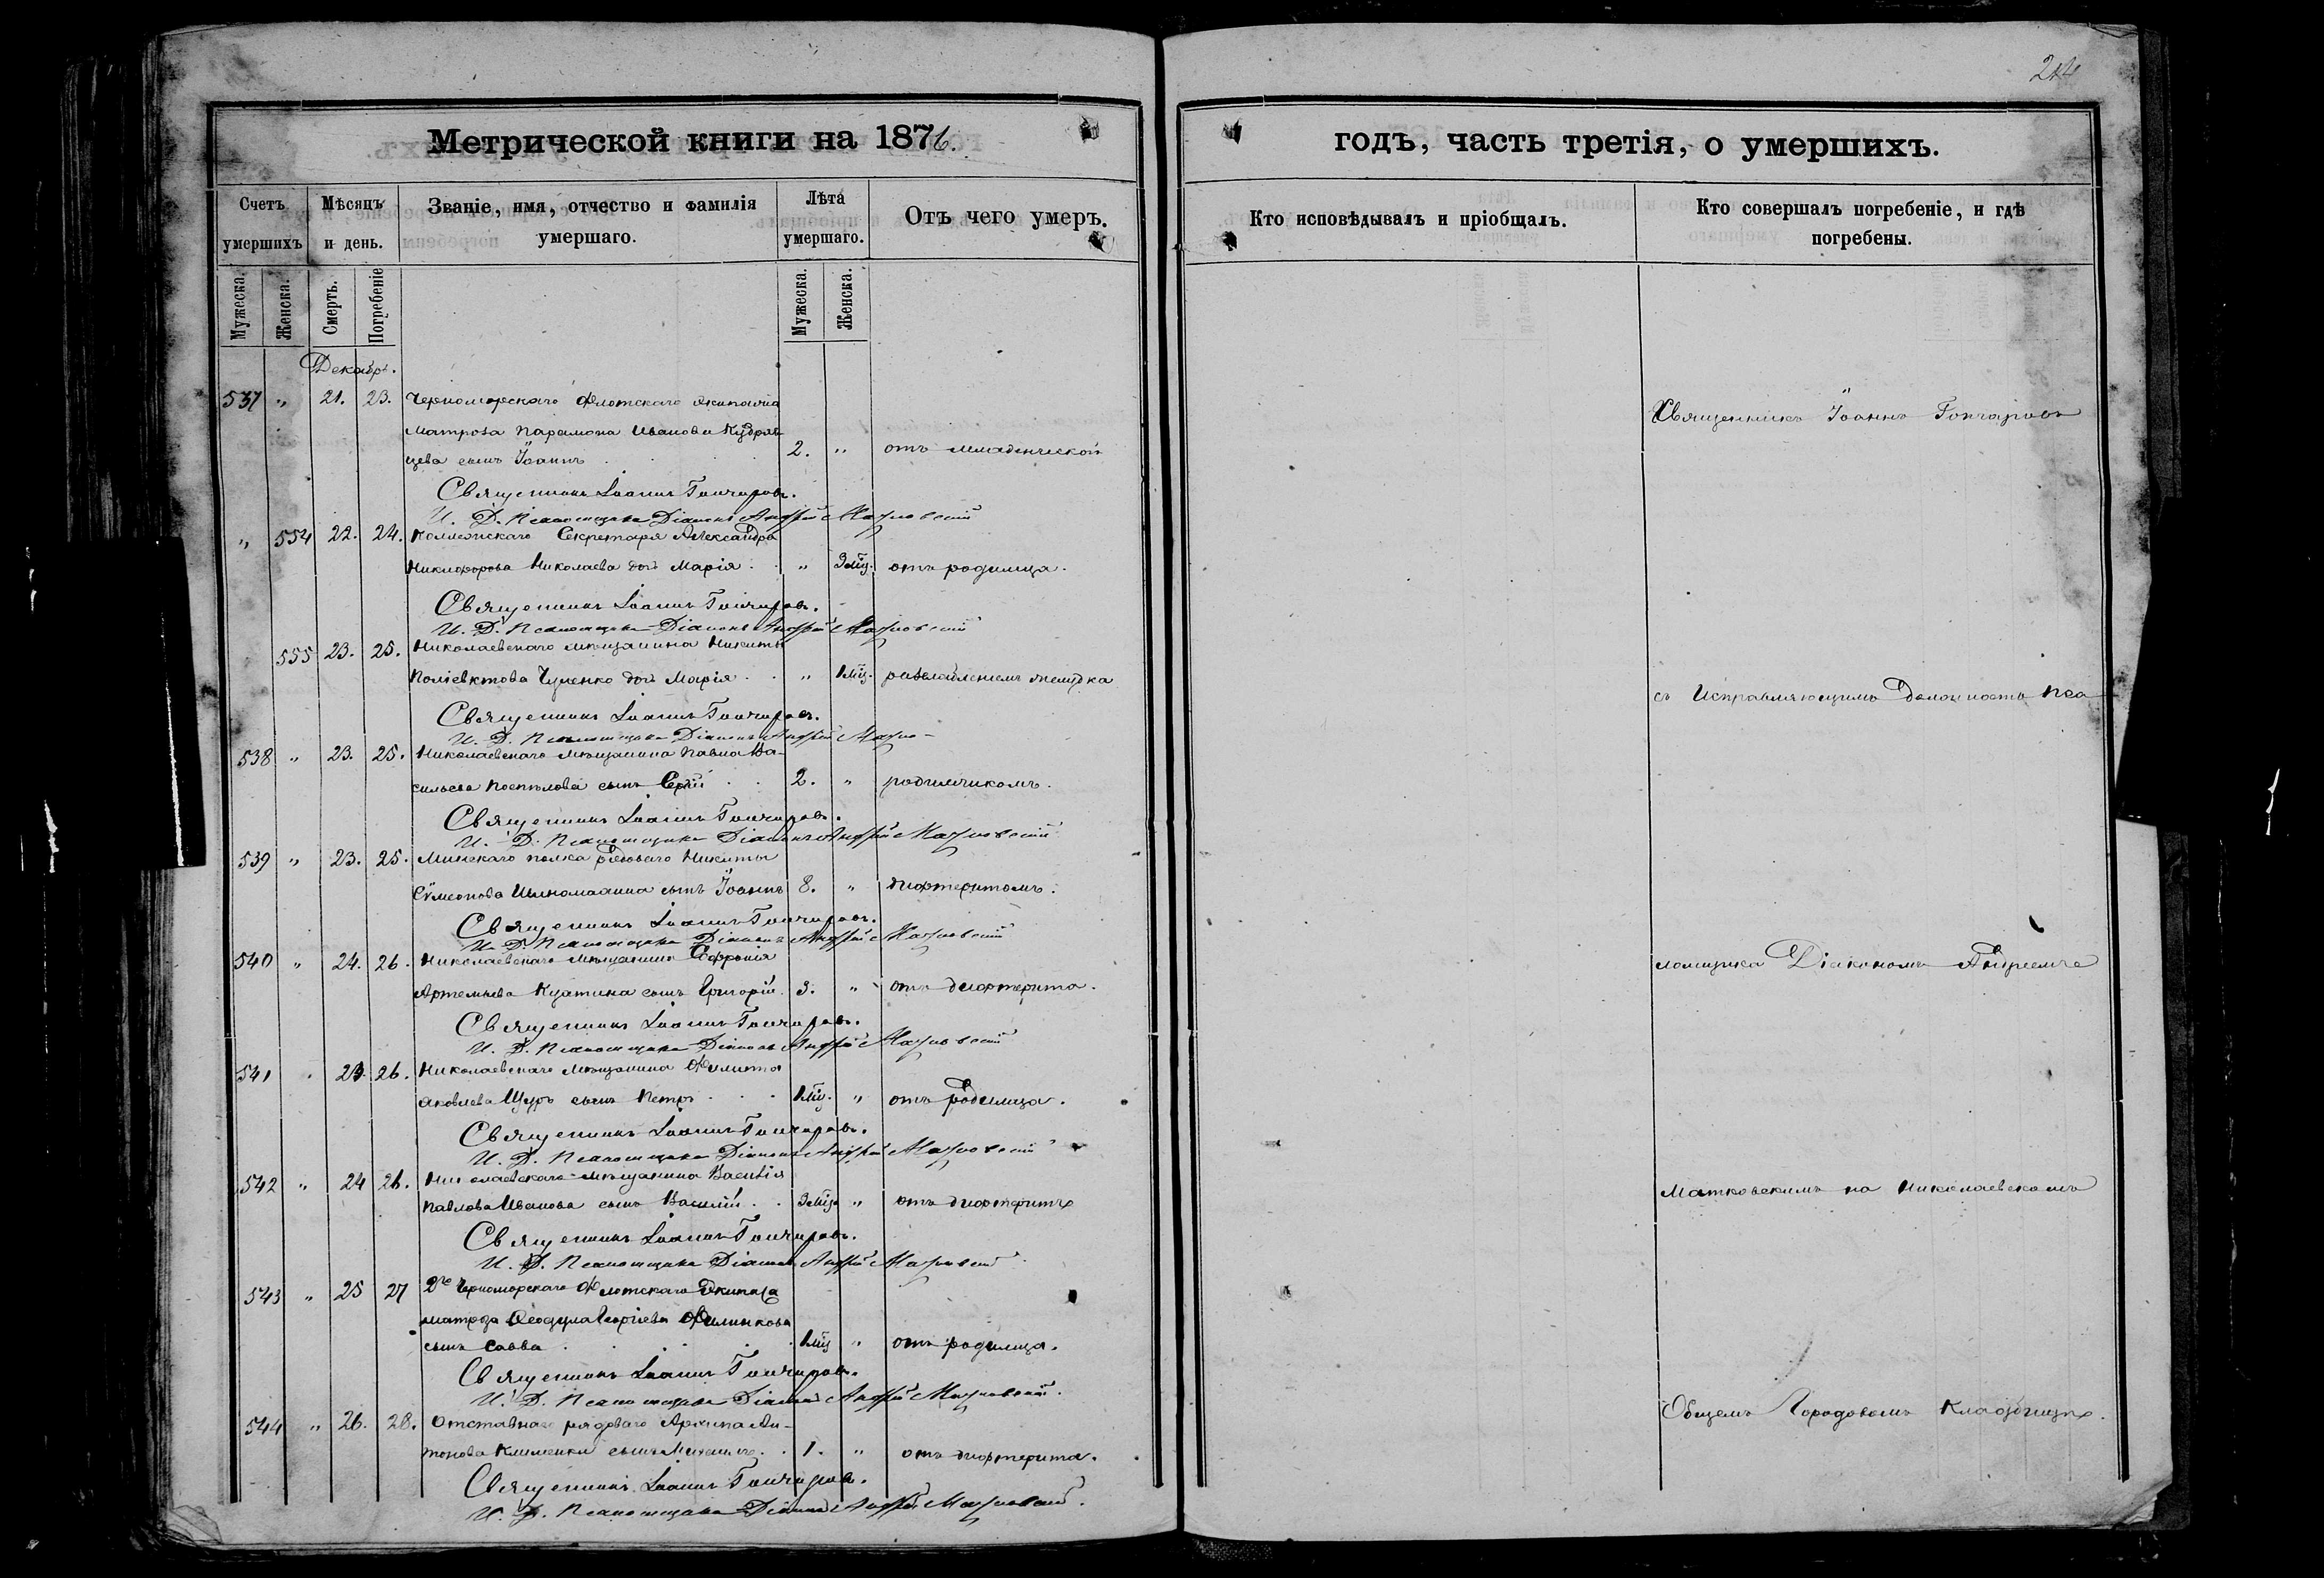 214
Метрической книги на 1876.
годъ, часть третія, о умершихъ.
Счетъ умершихъ
Мѣсяцъ и день.
Званіе, имя, отчество и фамилія умершаго.
Лѣта умершаго.
Отъ чего умеръ.
Кто исповѣдывалъ и пріобщалъ.
Кто совершалъ погребеніе, и гдѣ погребены.
Мужеска. Женска. Смерть. Погребеніе Мужеска. Женска.
Декабрь.
537 " 21. 23. Черноморскаго Флотскаго экипажа
Матроса Парамона Иванова Кудряв-
цева сынъ Іоаннъ 2. " отъ младенческой
Священникъ Іоаннъ Гончаровъ.
И. Д. Псаломщика Діаконъ Андрей
" 554 22. 24. Коллежскаго Секретаря Александра
Никифорова Николаева дочь Марія " 3 мц. отъ родимца.
Священникъ Іоаннъ Гончаровъ.
И. Д. Псаломщика Діаконъ Андрей
555 23. 25. Николаевскаго мѣщанина Никиты
Поліевктова дочь Марія " 1 мц.
Священникъ Іоаннъ Гончаровъ.
И. Д. Псаломщика Діаконъ Андрей
538 " 23. 25. Николаевскаго мѣщанина Павла Ва-
сильева Поспѣлова сынъ 2. " родимчикомъ.
Священникъ Іоаннъ Гончаровъ.
И. Д. Псаломщика Діаконъ Андрей
539 " 23. 25. Минскаго полка рядоваго Никиты
Сѵмеонова сынъ Іоаннъ 8. " дифтеритомъ.
Священникъ Іоаннъ Гончаровъ.
И. Д. Псаломщика Діаконъ Андрей
540 " 24. 26. Николаевскаго мѣщанина Софронія
Артемьева сынъ Григорій. 3. " отъ дифтерита.
Священникъ Іоаннъ Гончаровъ.
И. Д. Псаломщика Діаконъ Андрей
541 26. Николаевскаго мѣщанина Филипа
Яковлева Щуръ сынъ Петръ 1 мц. " отъ родимца.
Священникъ Іоаннъ Гончаровъ.
И. Д. Псаломщика Діаконъ Андрей
542 " 24 26. Николаевскаго мѣщанина Василія
Павлова Иванова сынъ Василій 3 мц. " отъ дифтерита
Священникъ Іоаннъ Гончаровъ.
И. Д. Псаломщика Діаконъ Андрей
543 " 25 27 2го Черноморскаго Флотскаго Экипажа
матроса Ѳеодула Георгіева Филинкова
сынъ Савва 1 мц " отъ родимца.
Священникъ Іоаннъ Гончаровъ.
И. Д. Псаломщика Діаконъ Андрей
544 " 26. 28. Отставнаго рядоваго Архипа Ан-
тонова Клименка сынъ Михаилъ 1. " отъ дифтерита.
Священникъ Іоаннъ Гончаровъ.
И. Д. Псаломщика Діаконъ Андрей
Священникъ Іоаннъ Гончаровъ
съ Исправляющимъ Должность Пса-
ломщика Діакономъ Андреемъ
Матковскимъ на Николаевскомъ
Общемъ Городовомъ Кладбищѣ.